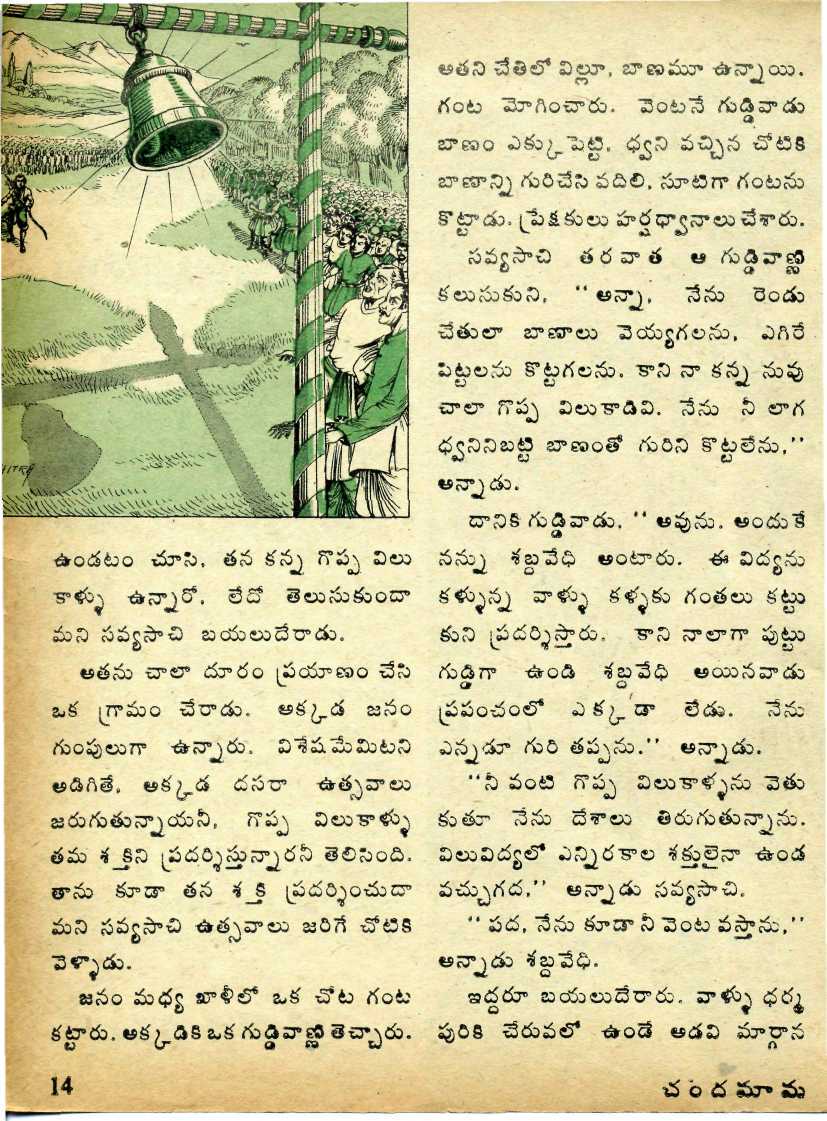 ఉండటం చూసి, తన కన్న గొప్ప విలు
కాళ్ళు ఉన్నారో, లేదో తెలుసుకుందా
మని సవ్యసాచి బయలుదేరాడు.
అతను చాలా దూరం ప్రయాణం చేసి
ఒక గ్రామం చేరాడు. అక్కడ జనం
గుంపులుగా ఉన్నారు. విశేషమేమిటని
అడిగితే, అక్కడ దసరా ఉత్సవాలు
జరుగుతున్నాయనీ, గొప్ప విలుకాళ్ళు
తమ శక్తిని ప్రదర్శిస్తున్నారనీ తెలిసింది.
తాను కూడా తన శక్తి ప్రదర్శించుదా
మని సవ్యసాచి ఉత్సవాలు జరిగే చోటికి
వెళ్ళాడు.
జనం మధ్య ఖాళీలో ఒక చోట గంట
కట్టారు. అక్కడికి ఒక గుడ్డివాణ్ణి తెచ్చారు.
అతని చేతిలో విల్లూ, బాణమూ ఉన్నాయి.
గంట మోగించారు. వెంటనే గుడ్డివాడు
బాణం ఎక్కుపెట్టి, ధ్వని వచ్చిన చోటికి
బాణాన్ని గురిచేసి వదిలి, సూటిగా గంటను
కొట్టాడు. ప్రేక్షకులు హర్షధ్వానాలు చేశారు.
సవ్యసాచి తరవాత ఆ గుడ్డివాణ్ణి
కలుసుకుని, "అన్నా, నేను రెండు
చేతులా బాణాలు వెయ్యగలను, ఎగిరే
పిట్టలను కొట్టగలను. కాని నా కన్న నువు
చాలా గొప్ప విలుకాడివి. నేను నీ లాగ
ధ్వనినిబట్టి బాణంతో గురిని కొట్టలేను,"
అన్నాడు.
దానికి గుడ్డివాడు, "అవును. అందుకే
నన్ను శబ్దవేధి అంటారు. ఈ విద్యను
కళ్ళున్న వాళ్ళు కళ్ళకు గంతలు కట్టు
కుని ప్రదర్శిస్తారు. కాని నాలాగా పుట్టు
గుడ్డిగా ఉండి శబ్దవేధి అయినవాడు
ప్రపంచంలో ఎక్కడా లేడు. నేను
ఎన్నడూ గురి తప్పను." అన్నాడు.
"నీ వంటి గొప్ప విలుకాళ్ళను వెతు
కుతూ నేను దేశాలు తిరుగుతున్నాను.
విలువిద్యలో ఎన్నిరకాల శక్తులైనా ఉండ
వచ్చుగద," అన్నాడు సవ్యసాచి.
"పద, నేను కూడా నీ వెంట వస్తాను,"
అన్నాడు శబ్దవేధి.
ఇద్దరూ బయలుదేరారు. వాళ్ళు ధర్మ
పురికి చేరువలో ఉండే అడవి మార్గాన
14
చందమామ